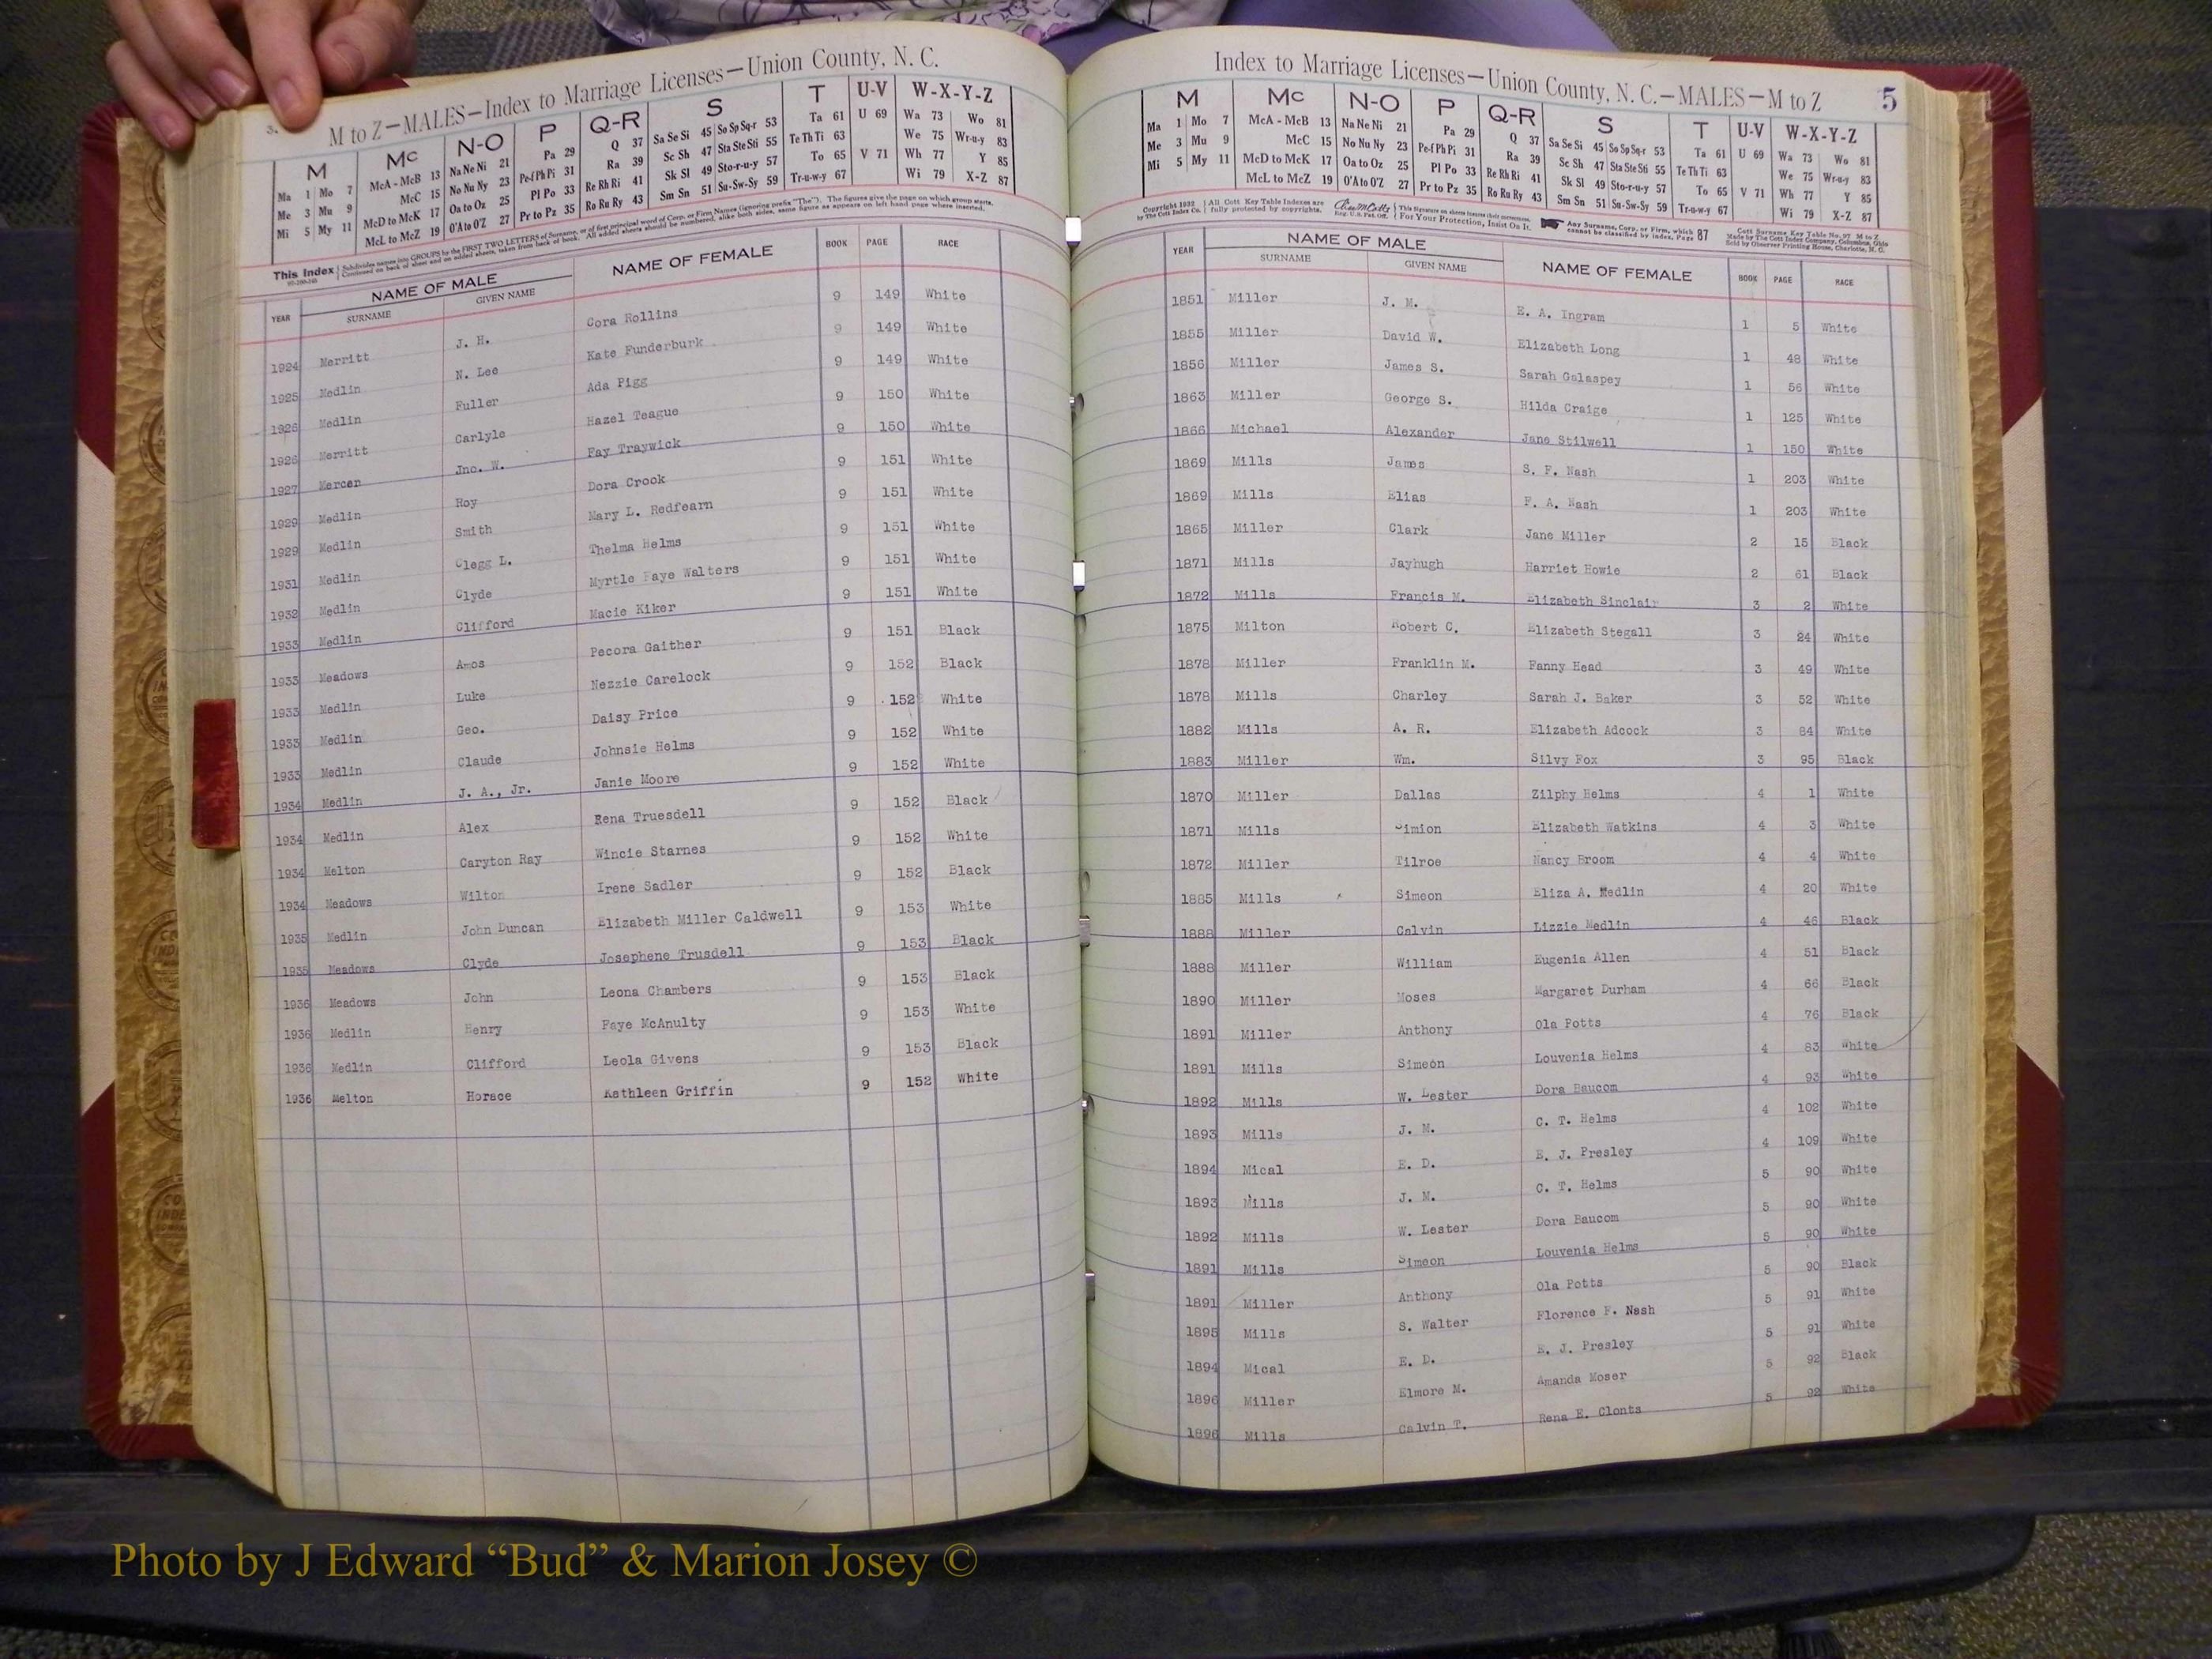 3.
M to Z—MALES—Index to Marriage Licenses—Union County, N. C.
M Mc N-O P Q-R S T U-V W-X-Y-Z
Ma 1 Mo 7 McA - McB 13 Na Ne Ni 21 Pa 29 Q 37 Sa Se Si 45 So Sp Sq-r 53 Ta 61 U 69 Wa 73 Wo 81
Me 3 Mu 9 McC 15 No Nu Ny 23 Pe-f Ph Pi 31 Ra 39 Sc Sh 47 Sta Ste Sti 55 Te Th Ti 63 We 75 Wr-u-y 83
Mi 5 My 11 McD to McK 17 Oa to Oz 25 Pl Po 33 Re Rh Ri 41 Sk Sl 49 Sto-r-u-y 57 To 65 V 71 Wh 77 Y 85
McL to McZ 19 O'A to O'Z 27 Pr to Pz 35 Ro Ru Ry 43 Sm Sn 51 Su-Sw-Sy 59 Tr-u-w-y 67 Wi 79 X-Z 87
This Index Subdivides names into GROUPS by the FIRST TWO LETTERS of Surname, or of first principal word of Corp. or Firm Names (ignoring prefix "The"). The figures give the page on which group starts.
Continued on back of sheet and on added sheets, taken from back of book. All added sheets should be numbered, alike both sides, same figure as appears on left hand page where inserted.
YEAR NAME OF MALE NAME OF FEMALE BOOK PAGE RACE
SURNAME GIVEN NAME
1924 Merritt J. H. Cora Rollins 9 149 White
1925 Medlin N. Lee Kate Funderburk 9 149 White
1926 Medlin Fuller Ada Pigg 9 149 White
1926 Merritt Carlyle Hazel Teague 9 150 White
1927 Mercer Jno. W. Fay Traywick 9 150 White
1929 Medlin Roy Dora Crook 9 151 White
1929 Medlin Smith Mary L. Redfearn 9 151 White
1931 Medlin Clegg L. Thelma Helms 9 151 White
1932 Medlin Clyde Myrtle Faye Walters 9 151 White
1933 Medlin Clifford Macie Kiker 9 151 White
1933 Meadows Amos Pecora Gaither 9 151 Black
1933 Medlin Luke Nezzie Carelock 9 152 Black
1933 Medlin Geo. Daisy Price 9 152 White
1933 Medlin Claude Johnsie Helms 9 152 White
1934 Medlin J. A., Jr. Janie Moore 9 152 White
1934 Medlin Alex Rena Truesdell 9 152 Black
1934 Melton Caryton Ray Wincie Starnes 9 152 White
1934 Meadows Wilton Irene Sadler 9 152 Black
1935 Medlin John Duncan Elizabeth Miller Caldwell 9 153 White
1935 Meadows Clyde Josephene Trusdell 9 153 Black
1936 Meadows John Leona Chambers 9 153 Black
1936 Medlin Henry Faye McAnulty 9 153 White
1936 Medlin Clifford Leola Givens 9 153 Black
1936 Melton Horace Kathleen Griffin 9 152 White
Index to Marriage Licenses—Union County, N. C.—MALES—M to Z 5
M Mc N-O P Q-R S T U-V W-X-Y-Z
Ma 1 Mo 7 McA - McB 13 Na Ne Ni 21 Pa 29 Q 37 Sa Se Si 45 So Sp Sq-r 53 Ta 61 U 69 Wa 73 Wo 81
Me 3 Mu 9 McC 15 No Nu Ny 23 Pe-f Ph Pi 31 Ra 39 Sc Sh 47 Sta Ste Sti 55 Te Th Ti 63 We 75 Wr-u-y 83
Mi 5 My 11 McD to McK 17 Oa to Oz 25 Pl Po 33 Re Rh Ri 41 Sk Sl 49 Sto-r-u-y 57 To 65 V 71 Wh 77 Y 85
McL to McZ 19 O'A to O'Z 27 Pr to Pz 35 Ro Ru Ry 43 Sm Sn 51 Su-Sw-Sy 59 Tr-u-w-y 67 Wi 79 X-Z 87
Copyright 1932 by The Cott Index Co. All Cott Key Table Indexes are fully protected by copyrights. Reg. U.S. Pat. Off. For Your Protection, Insist On It. Any Surname, Corp. or Firm, which cannot be classified by index, Page 87
Cott Surname Key Table No. 97 M to Z
Made by The Cott Index Company, Columbus, Ohio
Sold by Observer Printing House, Charlotte, N. C.
YEAR NAME OF MALE NAME OF FEMALE BOOK PAGE RACE
SURNAME GIVEN NAME
1851 Miller J. M. E. A. Ingram 1 5 White
1855 Miller David W. Elizabeth Long 1 48 White
1856 Miller James S. Sarah Galaspey 1 56 White
1863 Miller George S. Hilda Craige 1 125 White
1866 Michael Alexander Jane Stilwell 1 150 White
1869 Mills James S. F. Nash 1 203 White
1869 Mills Elias F. A. Nash 1 203 White
1865 Miller Clark Jane Miller 2 15 Black
1871 Mills Jayhugh Harriet Howie 2 61 Black
1872 Mills Francis M. Elizabeth Sinclair 3 2 White
1875 Milton Robert C. Elizabeth Stegall 3 24 White
1878 Miller Franklin M. Fanny Head 3 49 White
1878 Mills Charley Sarah J. Baker 3 52 White
1882 Mills A. R. Elizabeth Adcock 3 84 White
1883 Miller Wm. Silvy Fox 3 95 Black
1870 Miller Dallas Zilphy Helms 4 1 White
1871 Mills Simion Elizabeth Watkins 4 3 White
1872 Miller Tilroe Nancy Broom 4 4 White
1885 Mills Simeon Eliza A. Medlin 4 20 White
1888 Miller Calvin Lizzie Medlin 4 46 Black
1888 Miller William Eugenia Allen 4 51 Black
1890 Miller Moses Margaret Durham 4 66 Black
1891 Miller Anthony Ola Potts 4 76 Black
1891 Mills Simeon Louvenia Helms 4 83 White
1892 Mills W. Lester Dora Baucom 4 93 White
1893 Mills J. M. C. T. Helms 4 102 White
1894 Mical E. D. E. J. Presley 4 109 White
1893 Mills J. M. C. T. Helms 5 90 White
1892 Mills W. Lester Dora Baucom 5 90 White
1891 Mills Simeon Louvenia Helms 5 90 White
1891 Miller Anthony Ola Potts 5 90 Black
1895 Mills S. Walter Florence F. Nash 5 91 White
1894 Mical E. D. E. J. Presley 5 91 White
1896 Miller Elmore M. Amanda Moser 5 92 Black
1896 Mills Calvin T. Rena E. Clonts 5 92 White
Photo by J Edward “Bud” & Marion Josey ©